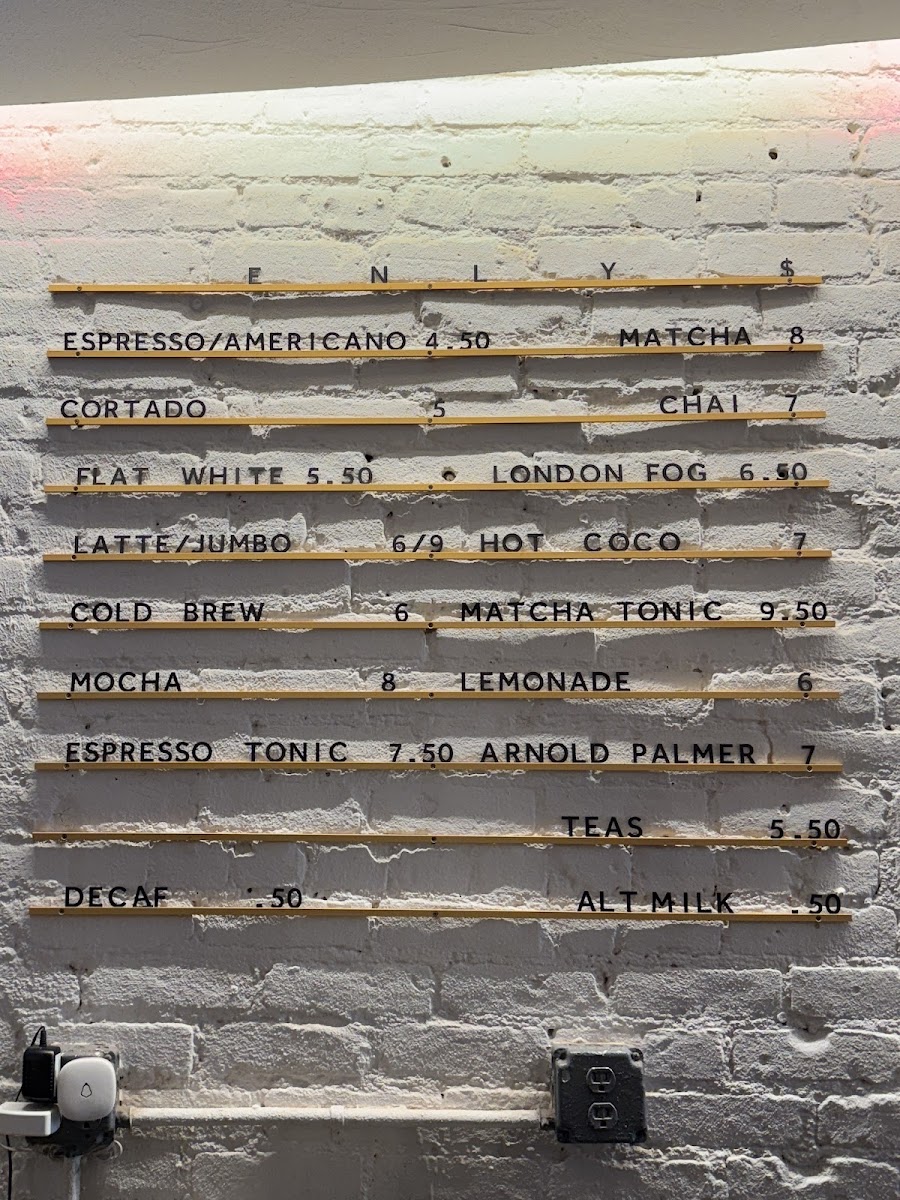 E N L Y $
ESPRESSO/AMERICANO 4.50 MATCHA 8
CORTADO 5 CHAI 7
FLAT WHITE 5.50 LONDON FOG 6.50
LATTE/JUMBO 6/9 HOT COCO 7
COLD BREW 6 MATCHA TONIC 9.50
MOCHA 8 LEMONADE 6
ESPRESSO TONIC 7.50 ARNOLD PALMER 7
TEAS 5.50
DECAF .50 ALT MILK .50